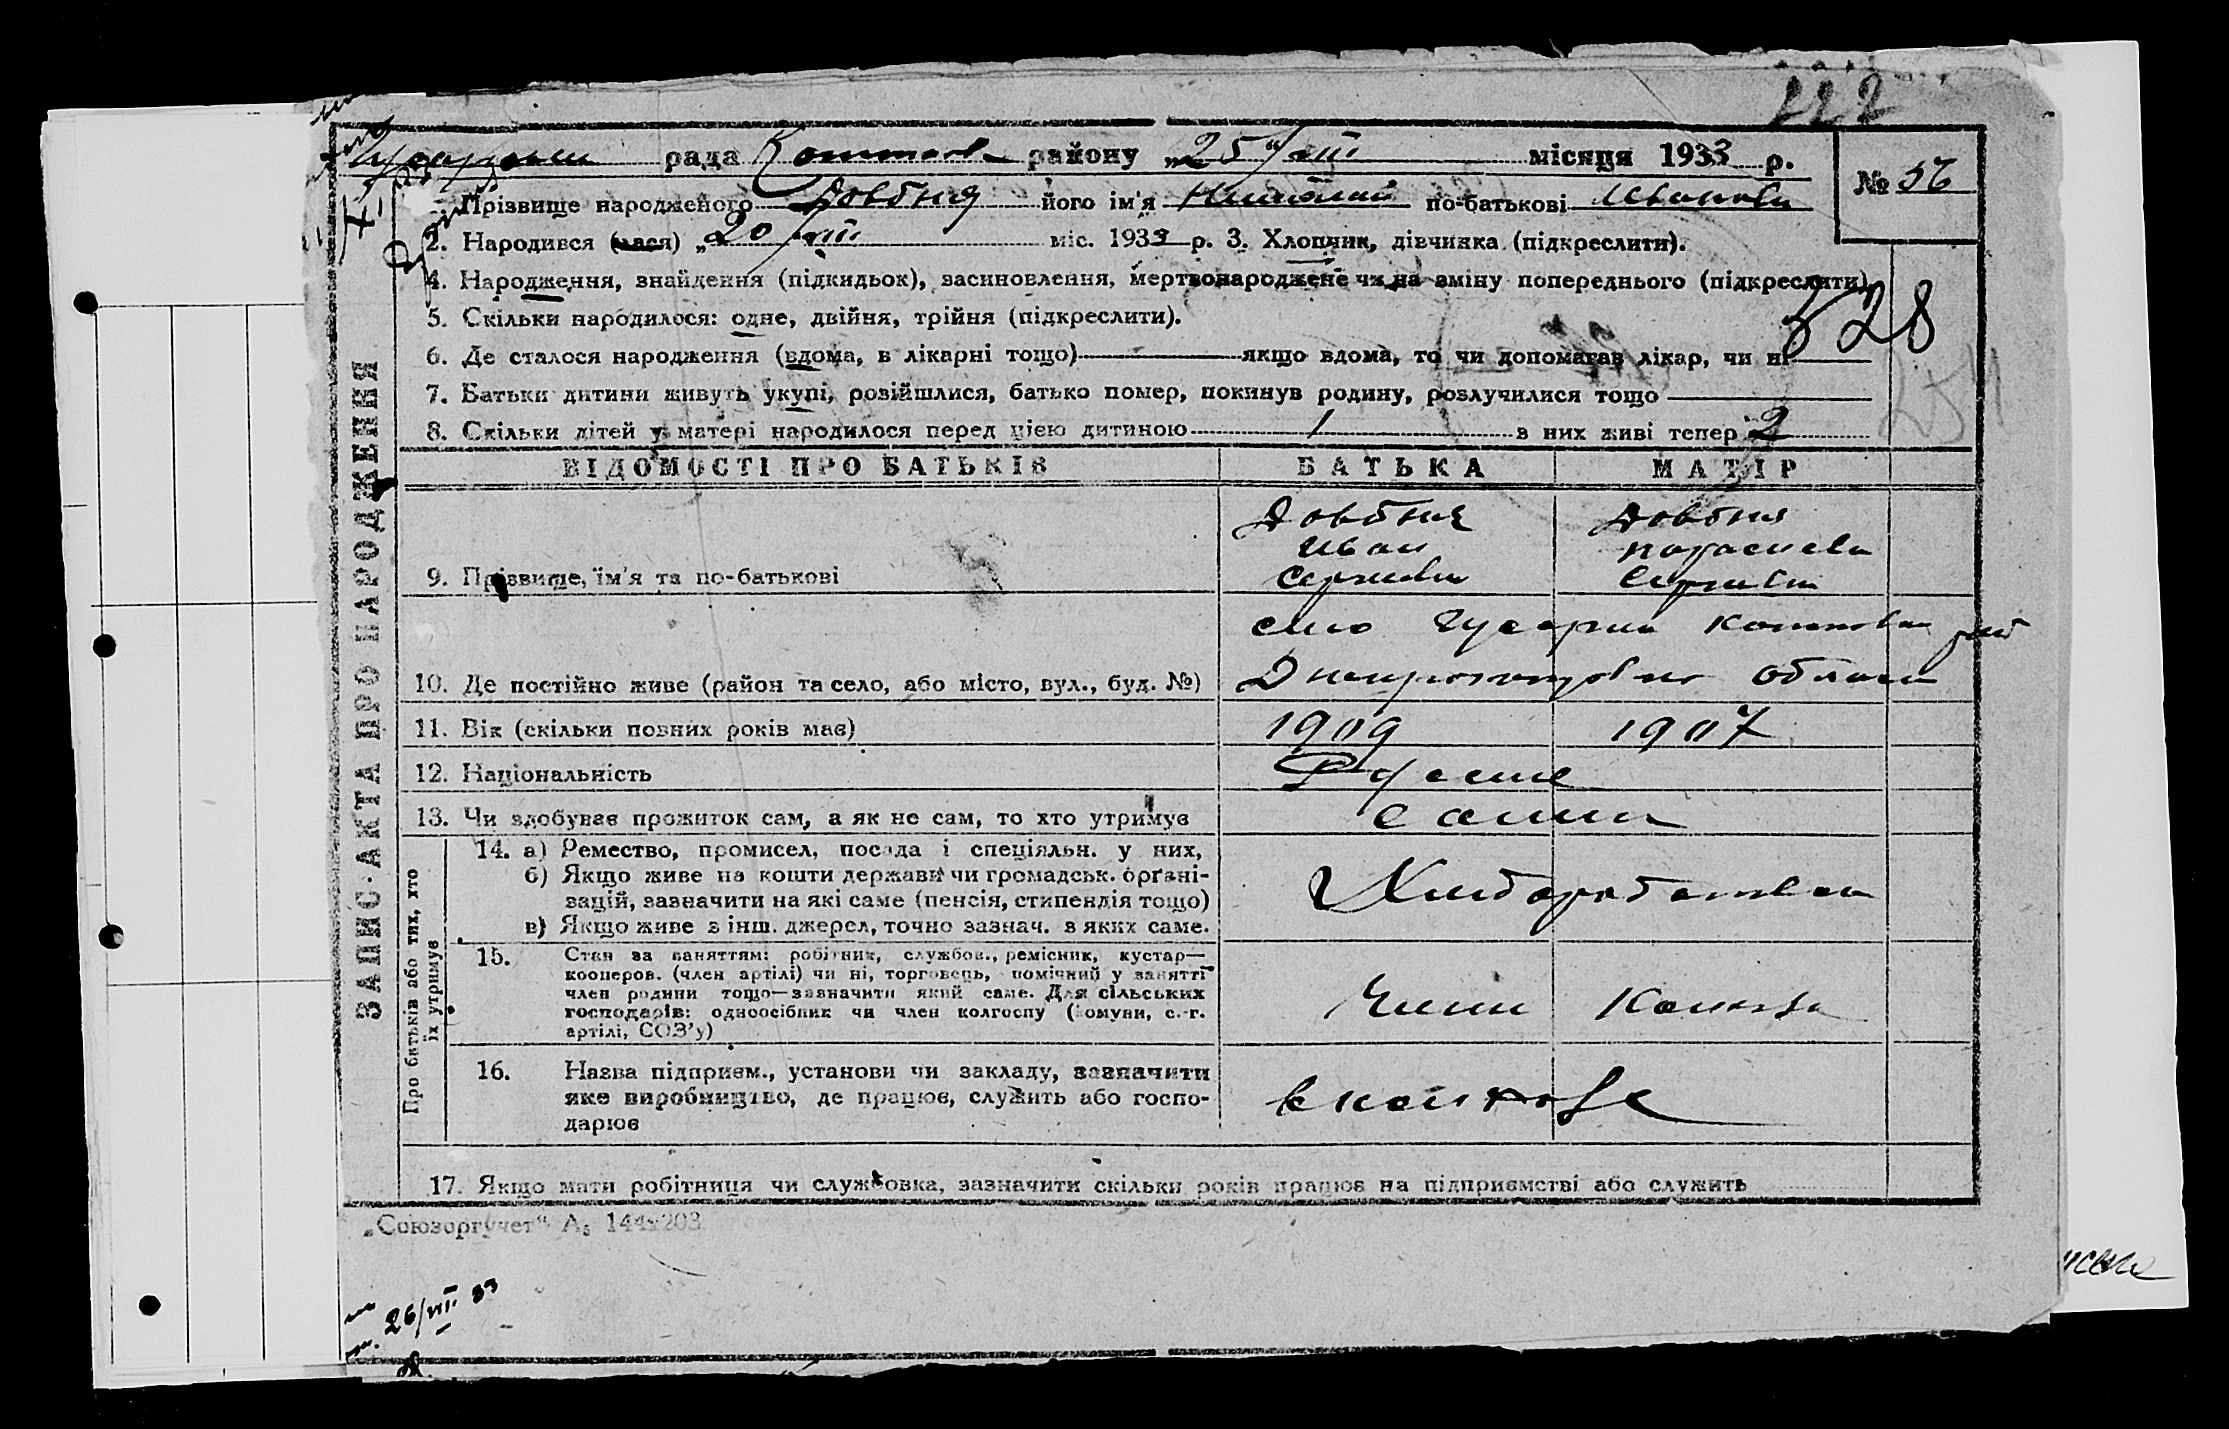 222
рада района „25" VIII місяця 1933 р.
№ 56
Прізвище народженого Довбня його ім'я Николай по-батькові Иванови
2. Народився (лася) „20 VIII міс. 1933 р. 3. Хлопчик, дівчинка (підкреслити).
4. Народження, знайдення (підкидьок), засиновлення, мертвонароджене чи на зміну попереднього (підкреслити)
5. Скільки народилося: одне, двійня, трійня (підкреслити).
528
6. Де сталося народження (вдома, в лікарні тощо) якщо вдома, то чи допомагав лікар, чи ні
7. Батьки дитини живуть укупі, розійшлися, батько помер, покинув родину, розлучилися тощо
8. Скільки дітей у матері народилося перед цією дитиною 1 з них живі тепер 2
ЗАПИС АКТА ПРО НАРОДЖЕННЯ
ВІДОМОСТІ ПРО БАТЬКІВ БАТЬКА МАТІР
Довбня Довбня
Иван
9. Прізвище, ім'я та по-батькові
село
10. Де постійно живе (район та село, або місто, вул., буд. №) области
11. Вік (скільки повних років має) 1909 1907
12. Національність Русские
13. Чи здобуває прожиток сам, а як не сам, то хто утримує сами
Про батьків або тих, хто їх утримує
14. а) Ремество, промисел, посада і спеціяльн. у них,
б) Якщо живе на кошти держави чи громадськ. орґані-
зацій, зазначити на які саме (пенсія, стипендія тощо)
в) Якщо живе з інш. джерел, точно зазнач. з яких саме.
15. Стан за заняттям: робітник, службов., ремісник, кустар—
кооперов. (член артілі) чи ні, торговець, помічний у занятті
член родини тощо—зазначити який саме. Для сільських
господарів: одноосібник чи член колгоспу (комуни, с.-г.
артілі, СОЗ'у)
16. Назва підприєм., установи чи закладу, зазначити
яке виробництво, де працює, служить або госпо-
дарює
в колхозе
17. Якщо мати робітниця чи службовка, зазначити скільки років працює на підприємстві або служить
„Союзоргучет"
26/VIII 33